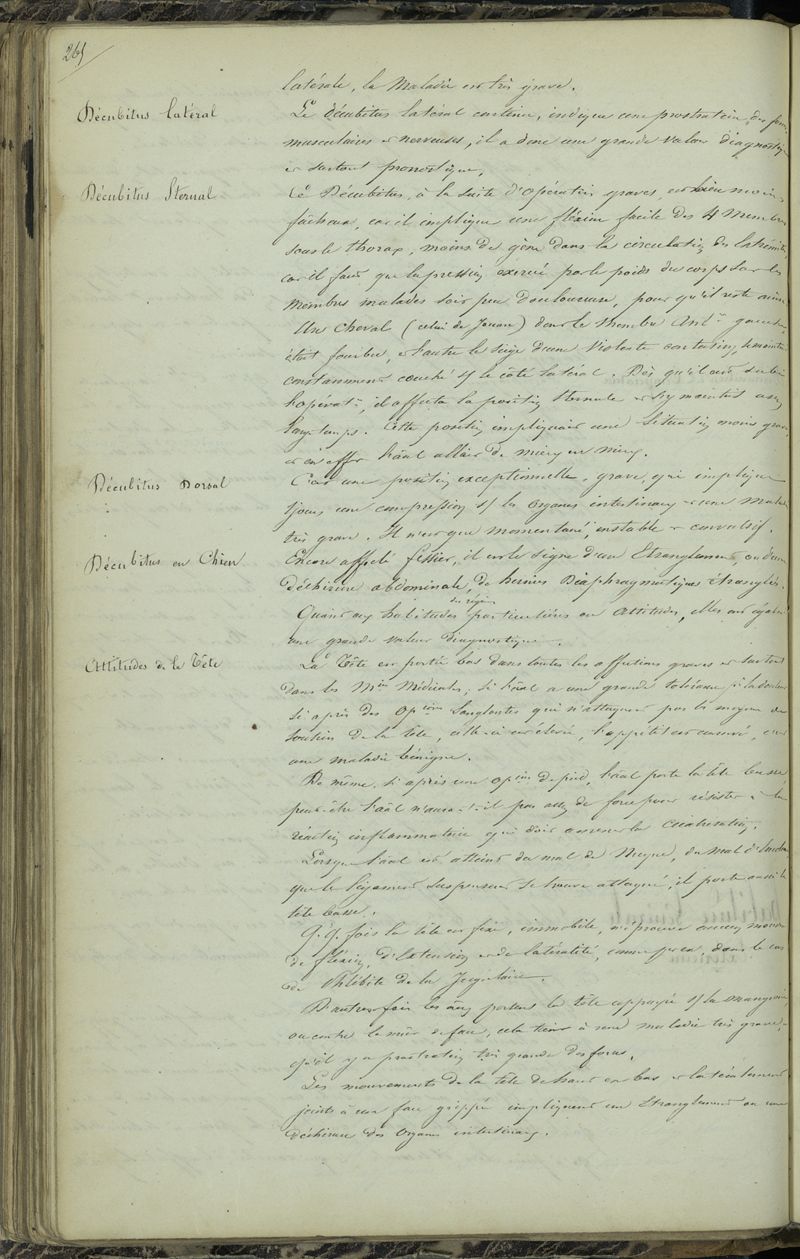 265
latérale, la Maladie est très grave.
Décubitus latéral
Le décubitus latéral continu, indique une prostration des forces
musculaires et nerveuses, il a donc une grande valeur diagnostique
et surtout pronostique,
Décubitus Sternal
Ce Décubitus, à la suite d'opération graves, est bien moins
fâcheux, car il implique une flexion facile des 4 Membres
sous le thorax, moins de gêne dans la circulation des extrémités,
car il faut que la pression exercée par le poids du corps sur les
Membres malades soit peu douloureuse, pour qu'il reste ainsi
Un Cheval (celui de Jouan) dont le Membre Antr gauche
était fourbu, et l'autre le siège d'une violente contusion, demeurait
constamment couché s/ le côté latéral. Dès qu'il eut subi
l'opérat°, il affecta la position sternale et s'y maintint assez
longtemps. Cette position impliquait une situation moins grave,
et en effet l'aal allait de mieux en mieux.
Décubitus Dorsal
C'est une position exceptionnelle, grave, qui implique
tjours une compression s/ les organes intestinaux et une maladie
très grave. Il n'est que momentané, instable et convulsif.
Décubitus en Chien
Encore appelé fessier, il est le signe d'une Etranglement, ou d'une
déchirure abdominale, de hernies Diaphragmatiques étranglées.
des régions
Quant aux habitudes particulières ou attitudes, elles ont également
une grande valeur diagnostique.
Attitudes de la Tête
La Tête est portée bas dans toutes les affections graves et surtout
dans les Mies Médicales; si l'aal a une grande tolérance p. la douleur
si après des opions sanglantes qui n'attaquent pas les moyens de
soutien de la tête, celle-ci est élevée, l'appétit est conservé, c'est
une maladie bénigne.
De même, si après une opion de pied, l'aal porte la tête basse,
peut-être l'aal n'aura-t-il pas assez de force pour résister à la
réaction inflammatoire qui doit amener la cicatrisation.
Lorsque l'aal est atteint du mal de Nuque, du mal d'Encolure,
que le ligament suspenseur se trouve attaqué, il porte aussi la
tête basse.
Q.Q. fois la tête est fixe, immobile, n'éprouve aucun mouvt
de flexion, d'Extension et de latéralité, comme p. ex. dans le cas
de Phlébite de la Jugulaire.
D'autres fois les aux portent la tête appuyée s/ la mangeoire,
ou contre le mur de face, cela tient à une maladie très grave,
qu'il y a prostration très grande des forces,
Les mouvements de la tête de haut en bas et latéralement
joints à une face grippée impliquent un Etranglement ou une
Déchirure des organes intestinaux.